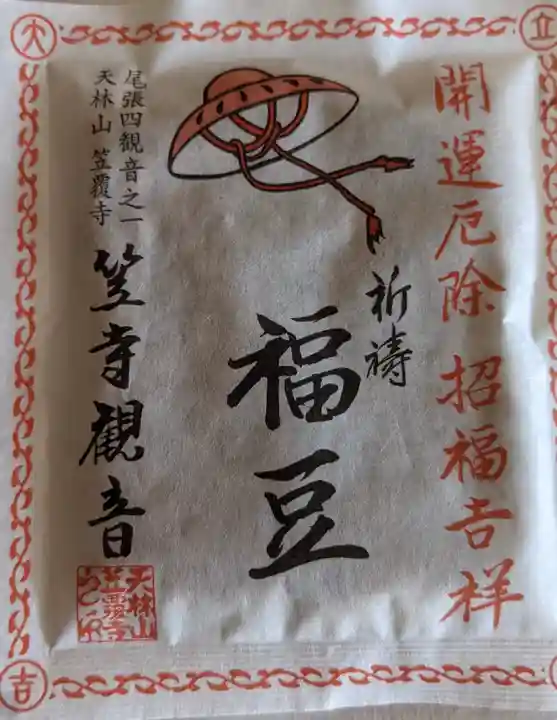 開運厄除 招福吉祥
祈祷
福豆
尾張四観音之一
天林山 笠覆寺
笠寺観音
天林山
笠覆寺
大
立
吉